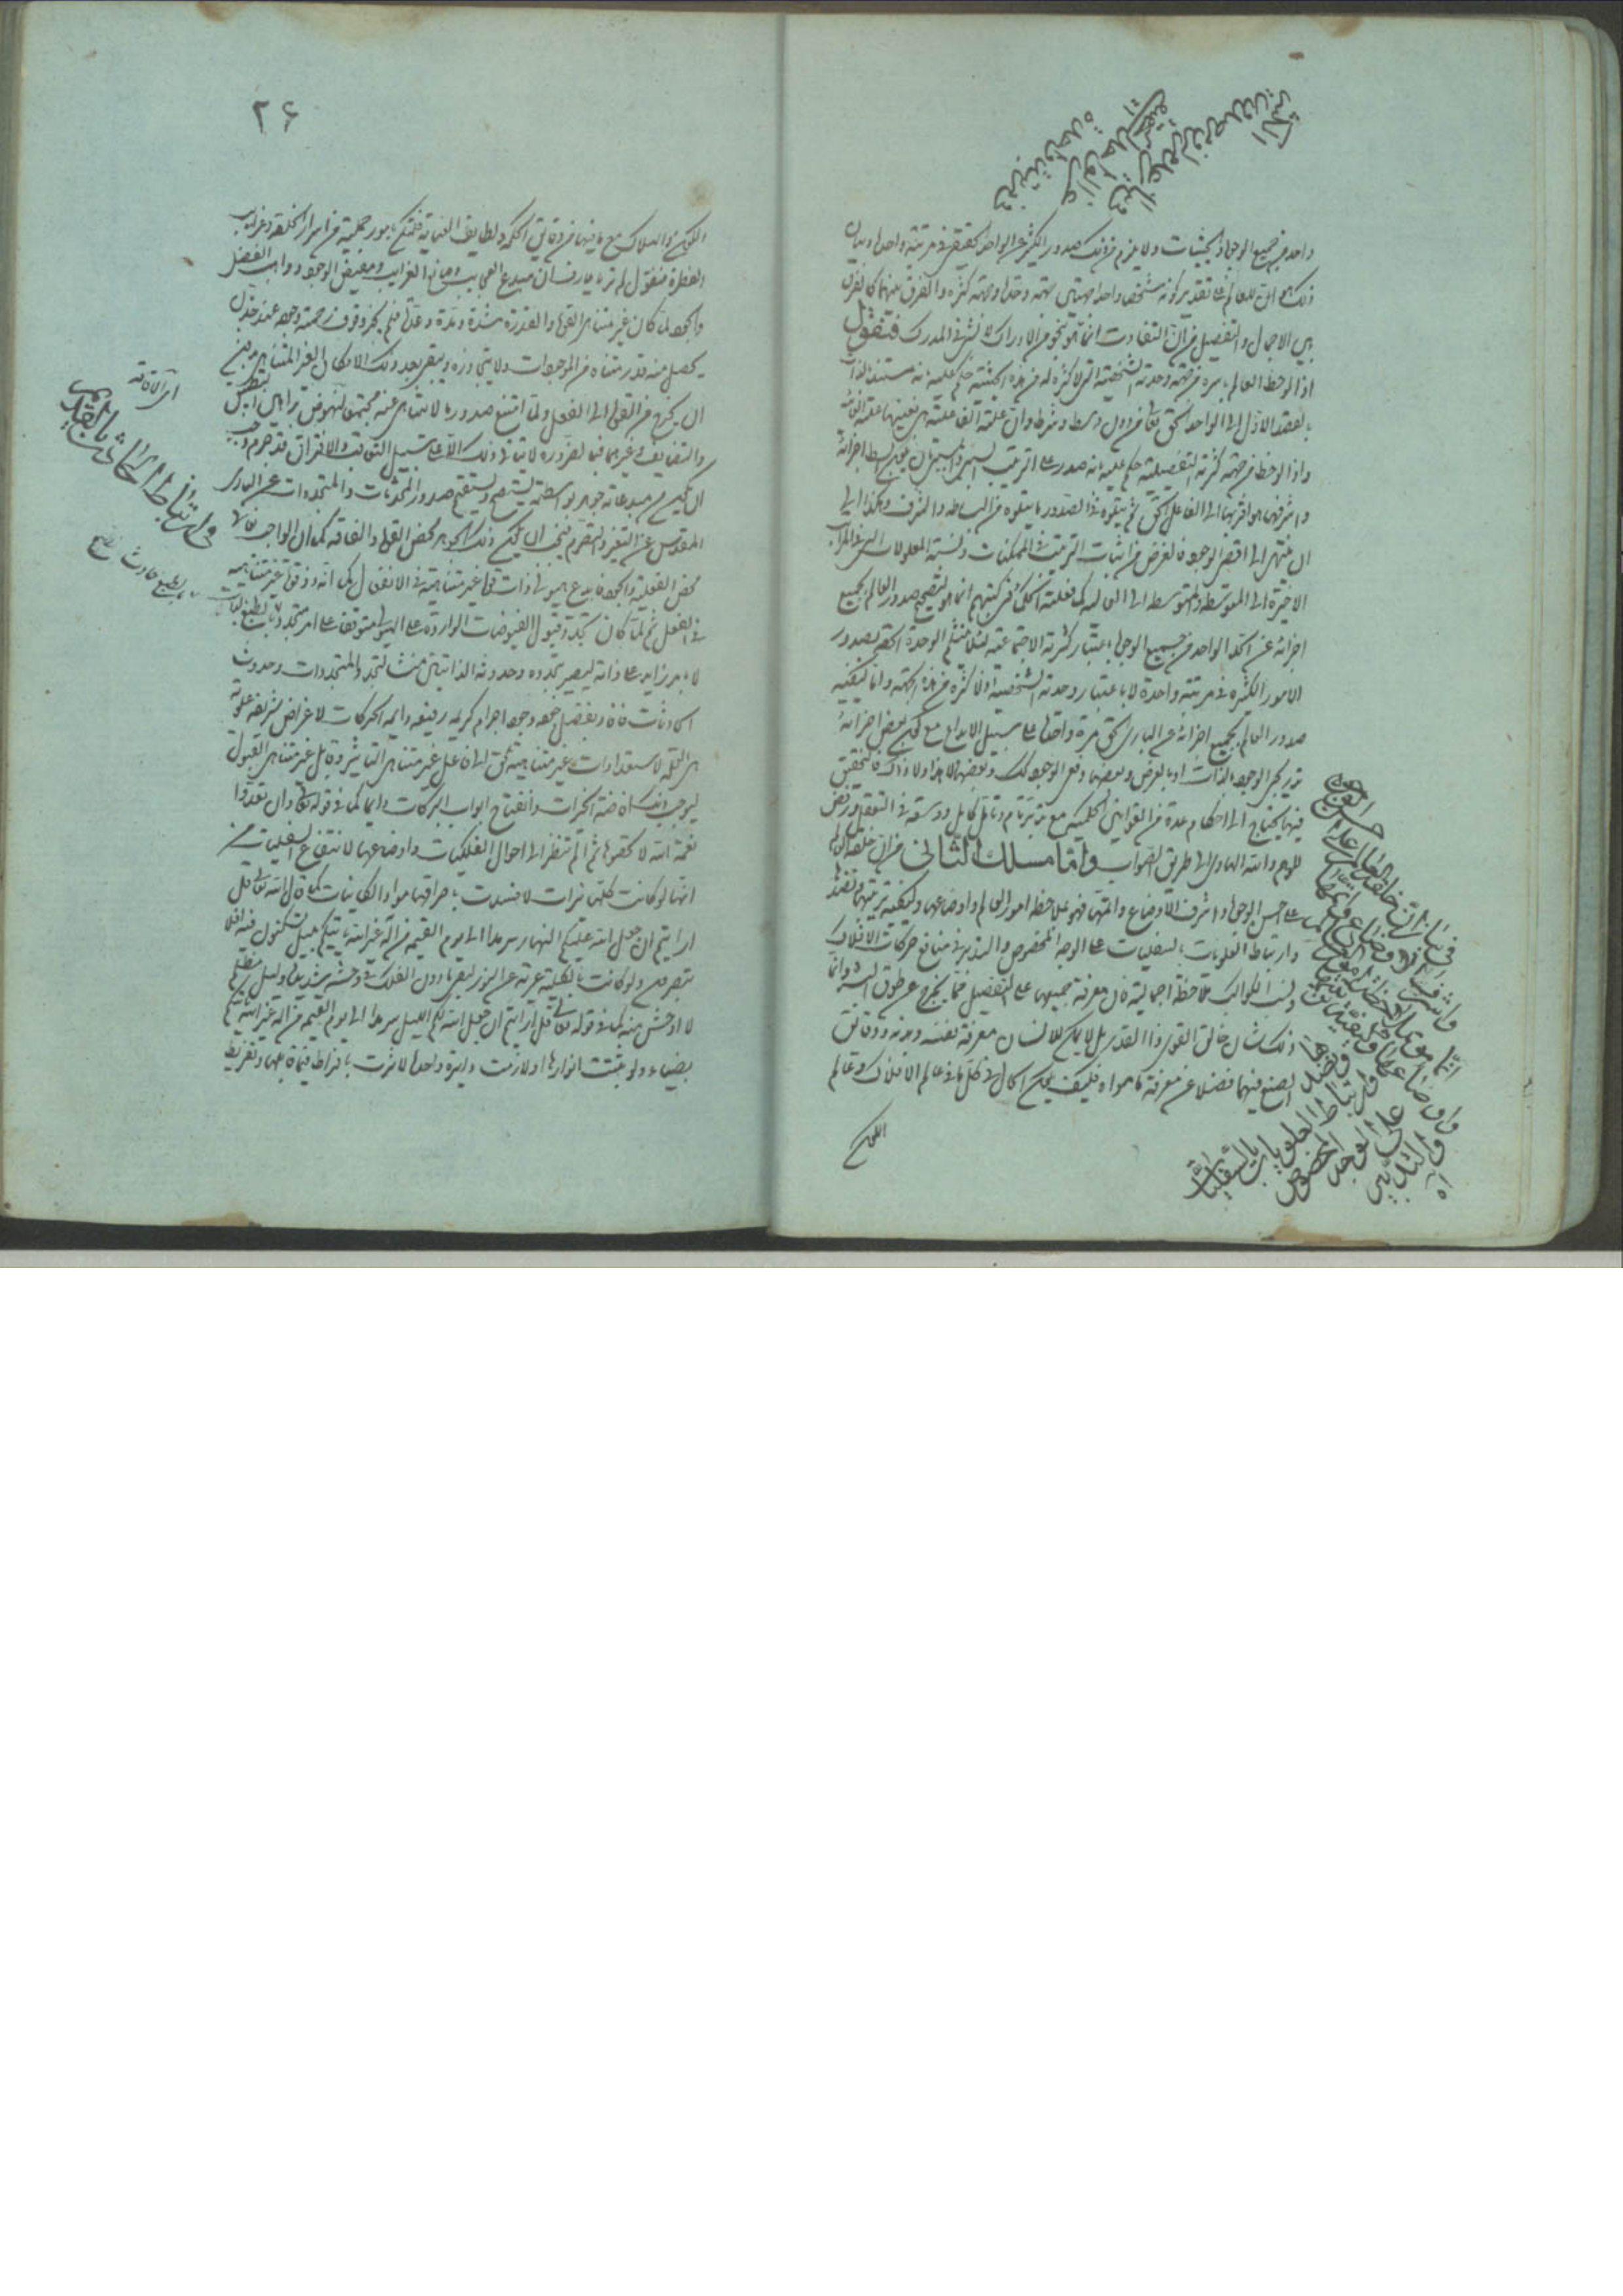 واحد من جميع الوجوه والحيثيات ولا يلزم من ذلك صدور الكثير عن الواحد الحقيقى فى مرتبة واحدة وبيان
ذلك ان للعالم على تقدير كونه شخصا واحدا جهتين جهة وحدة وجهة كثرة والفرق بينهما كالفرق
بين الاجمال والتفصيل من ان التفاوت انما هو بنحو من الادراك لا بشىء فى المدرك فنقول
اذا لوحظ العالم باسره من جهة وحدته الشخصية التى لا كثرة له من هذه الحيثية حكم عليه بانه مستند
بالقصد الاول الى الواحد الحق تعالى من دون وسط وشرط وان علته
واذا لوحظ من جهة كثرته التفصيلية حكم عليه بانه صدر على الترتيب السببى والمسببى بان يكون ابسط اجزائه
واشرفها هو اقربها الى الفاعل الحق ثم يتلوه فى الصدور ما يتلوه فى البساطة والشرف وهكذا الى
ان ينتهى الى اقصى الوجود فالغرض من اثبات الترتيب فى الممكنات ونسبة المعلولات التى فى المراتب
الاخيرة الى المتوسطة والمتوسطة الى العالية كما فعلته الحكماء فى كتبهم انما هو لتصحيح صدور العالم بجميع
اجزائه عن الحق الواحد من جميع الوجوه باعتبار كثرته الاجتماعية لئلا ينثلم الوحدة الحقة بصدور
الامور الكثيرة فى مرتبة واحدة لا باعتبار وحدته الشخصية اذ لا كثرة من هذه الجهة واما كيفية
صدور العالم بجميع اجزائه عن البارى الحق مرة واحدة على سبيل الابداع مع كون بعض اجزائه
تدريجى الوجود بالذات او بالعرض وبعضها دفعى الوجود كذلك وبعضها لا هذا ولا ذاك فالتحقيق
فيها يحتاج الى احكام عدة من القوانين الحكمية مع تدبر تام وتأمل كامل وتوسعة فى التعقل ورفض
للوهم والله الهادى الى طريق الصواب واما مسلك الثانى من ان خلقة العالم
على احسن الوجوه واشرف الاوضاع واتمها فهو بملاحظة امور العالم واوضاعها وكيفية ترتيبها ونضدها
وارتباط العلويات بالسفليات على الوجه المخصوص والتدبر فى منافع حركات الافلاك
ونسب الكواكب ملاحظة اجمالية فان معرفة جميعها على التفصيل مما يخرج عن طوق البشر وانما
ذلك شأن خالق القوى والقدر بل لا يمكن للانسان معرفة نفسه وبدنه ودقائق
الصنع فيهما فضلا عن معرفة ما سواه فكيف يكون الحال فى كل ما فى عالم الافلاك وعالم
فى بيان ان خلقة العالم على احسن الوجوه
واشرف الاوضاع واتمها
انما هو بملاحظة امور العالم
واوضاعها وكيفية ترتيبها
ونضدها
وارتباط العلويات بالسفليات
على الوجه المخصوص
والتدبر
اه
۲۶
والاملاك مع ما فيهما من دقايق الحكمة ولطايف العناية فلنتكلم بامور جملية من اسرار الخلقة وغرايب
الفطرة فنقول لما تقرر ان مبدع العجايب وصانع الغرايب ومفيض الوجود وواهب الفضل
والجود لما كان غير متناهى القوة والقدرة شدة ومدة وعدة فلم يجز وقوف رحمته وجوده عند حد لان
يحصل منه قدر متناه من الموجودات ولا يتجاوزه ويبقى بعد ذلك الامكان الغير المتناهى من غير
ان يخرج من القوة الى الفعل ولما امتنع صدور ما لا يتناهى عنه مجتمعا لنهوض براهين التطبيق
والتضايف وغيرهما فبالضرورة لا يتأتى ذلك الا على سبيل التعاقب والافتراق فلا جرم وجب
ان يكون من مبدعاته جوهر بواسطته يصح ويستقيم صدور المحدثات والمتجددات عن البارى
المقدس عن التغير والتصرم فيجب ان يكون ذلك الجوهر محض القوة والفاقة كما ان الواجب تعالى
محض الفعلية والجود فابدع هيولى ذات قوة غير متناهية فى الانفعال كما انه ذو قوة غير متناهية
فى الفعل ثم لما كان تجدد قبول الفيوضات الواردة على الهيولى متوقفا على امر متجدد بالطبع
لا بامر زايد على ذاته ليصير تجدده وحدوثه الذاتيان منشأ لتجدد المتجددات وحدوث
الحادثات فافاد بفضل جوده وجود اجرام كريمة رفيعة دايمة الحركات لاغراض شريفة علوية
هى التلو لاستعدادات غير متناهية تنضم الى فاعل غير متناهى التأثير وقابل غير متناهى القبول
ليوجب ذلك افاضة الخيرات وانفتاح ابواب البركات دايما كما فى قوله تعالى وان تعدوا
نعمة الله لا تحصوها ثم الم تنظر الى احوال الفلكيات واوضاعها لانتفاع السفليات من
انها لو كانت كلها نيرات لافسدت باحراقها مواد الكاينات كما قال الله تعالى قل
ارايتم ان جعل الله عليكم النهار سرمدا الى يوم القيمة من اله غير الله يأتيكم بليل تسكنون فيه افلا
تبصرون ولو كانت بالكلية عرية عن النور لبقى ما دون الفلك فى وحشة شديدة وليل مظلم
لا اوحش منه كما فى قوله تعالى قل ارايتم ان جعل الله عليكم الليل سرمدا الى يوم القيمة من اله غير الله يأتيكم
بضياء ولو ثبتت انوارها او لازمت دايرة واحدة لاثرت بافراط فيما قابلها وتفريط
فى ارتباط الحادث بالقديم